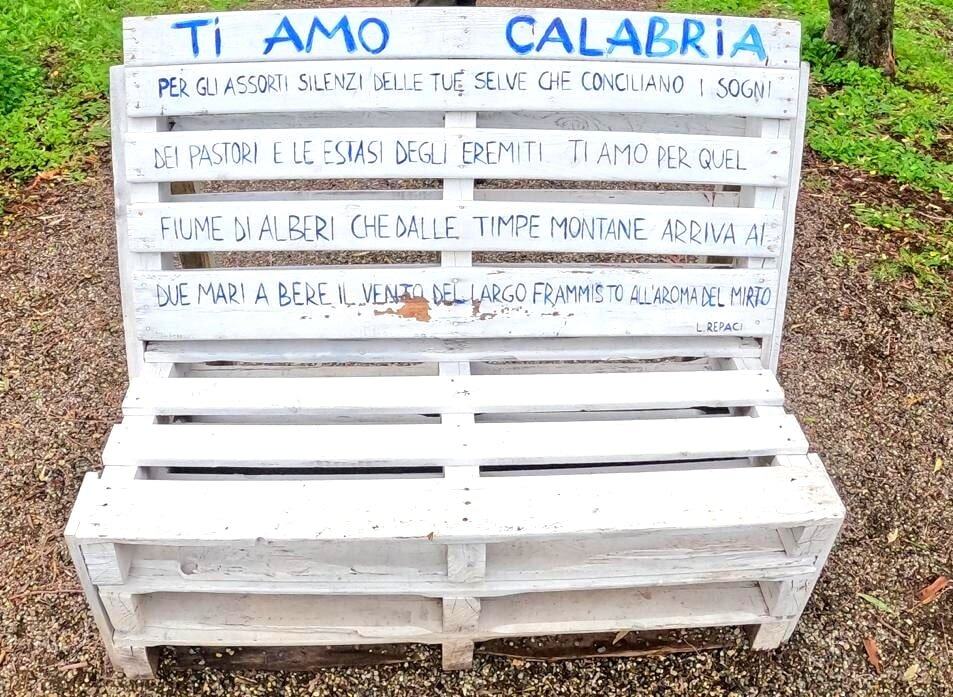 Ti AMO CALABRiA
PER GLI ASSORTI SILENZI DELLE TUE SELVE CHE CONCILIANO I SOGNI
DEI PASTORI E LE ESTASI DEGLI EREMITI TI AMO PER QUEL
FIUME DI ALBERI CHE DALLE TIMPE MONTANE ARRIVA AI
DUE MARI A BERE IL VENTO DEL LARGO FRAMMISTO ALL'AROMA DEL MIRTO
L. REPACI